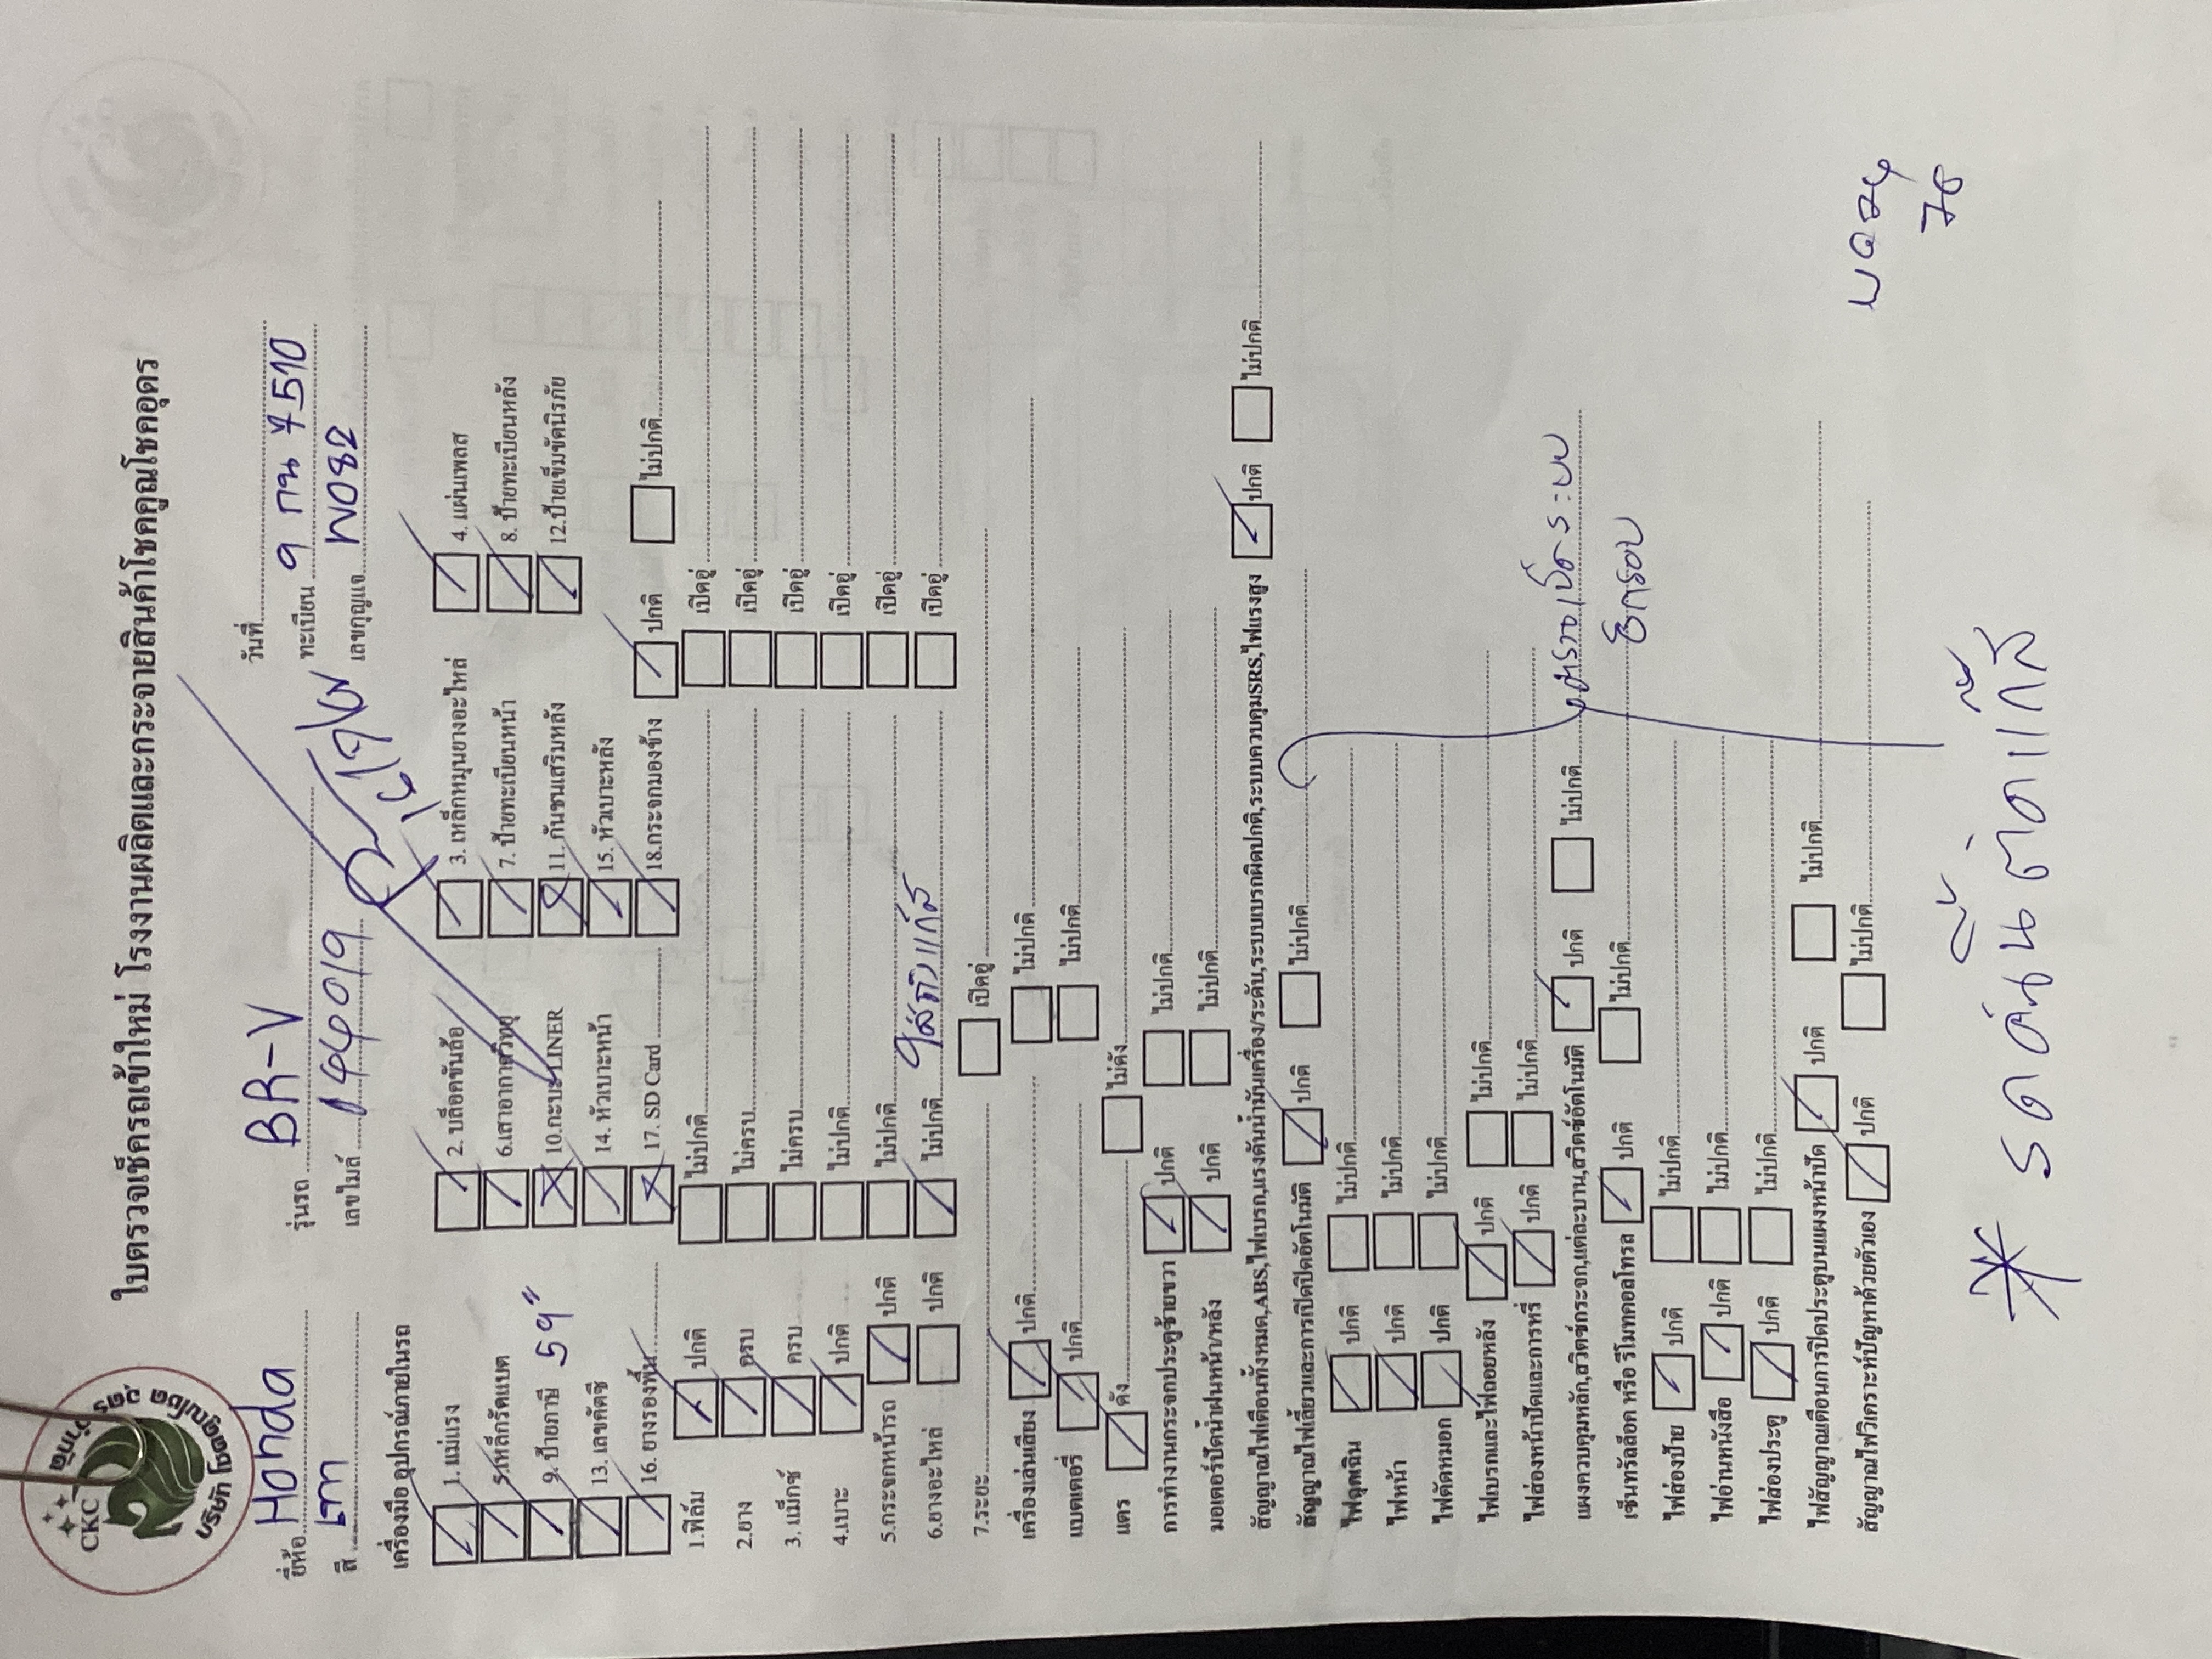 CKC
บริษัท โชคคูณโชค อุดร จำกัด
ใบตรวจเช็ครถเข้าใหม่ โรงงานผลิตและกระจายสินค้าโชคคูณโชคอุดร
ยี่ห้อ Honda รุ่นรถ BR-V วันที่
สี เทา เลขไมล์ 144019 ทะเบียน 9 กน 7510
เลขกุญแจ N082
เครื่องมือ อุปกรณ์ภายในรถ
1. แม่แรง 2. บล็อคขันล้อ 3. เหล็กหมุนยางอะไหล่ 4. แผ่นเพลส
5.เหล็กรัดแบต 6.เสาอากาศวิทยุ 7. ป้ายทะเบียนหน้า 8. ป้ายทะเบียนหลัง
9. ป้ายภาษี 59" 10.กะบะ LINER 11.กันชนเสริมหลัง 12.ป้ายเข็มขัดนิรภัย
13. เลขคัตซี 14. หัวเบาะหน้า 15. หัวเบาะหลัง
16. ยางรองพื้น 17. SD Card 18.กระจกมองข้าง ปกติ ไม่ปกติ
1.ฟิล์ม ปกติ ไม่ปกติ เปิดอู่
2.ยาง ครบ ไม่ครบ เปิดอู่
3. แม็กซ์ ครบ ไม่ครบ เปิดอู่
4.เบาะ ปกติ ไม่ปกติ เปิดอู่
5.กระจกหน้ารถ ปกติ ไม่ปกติ เปิดอู่
6.ยางอะไหล่ ปกติ ไม่ปกติ ใส่ถังแก๊ส เปิดอู่
7.ระยะ เปิดอู่
เครื่องเล่นเสียง ปกติ ไม่ปกติ
แบตเตอรี่ ปกติ ไม่ปกติ
แตร ดัง ไม่ดัง
การทำงานกระจกประตูซ้ายขวา ปกติ ไม่ปกติ
มอเตอร์ปัดน้ำฝนหน้า/หลัง ปกติ ไม่ปกติ
สัญญาณไฟเตือนทั้งหมด,ABS,ไฟเบรก,แรงดันน้ำมันเครื่อง/ระดับ,ระบบเบรกผิดปกติ,ระบบควบคุมSRS,ไฟแรงสูง ปกติ ไม่ปกติ
สัญญาณไฟเลี้ยวและการเปิดปิดอัตโนมัติ ปกติ ไม่ปกติ
ไฟฉุกเฉิน ปกติ ไม่ปกติ
ไฟหน้า ปกติ ไม่ปกติ
ไฟตัดหมอก ปกติ ไม่ปกติ
ไฟเบรกและไฟถอยหลัง ปกติ ไม่ปกติ
ไฟส่องหน้าปัดและการหรี่ ปกติ ไม่ปกติ
แผงควบคุมหลัก,สวิตซ์กระจก,แต่ละบาน,สวิตซ์อัตโนมัติ ปกติ ไม่ปกติ ตรวจเช็คระบบ
เซ็นทรัลล็อค หรือ รีโมทคอลโทรล ปกติ ไม่ปกติ อีกรอบ
ไฟส่องป้าย ปกติ ไม่ปกติ
ไฟอ่านหนังสือ ปกติ ไม่ปกติ
ไฟส่องประตู ปกติ ไม่ปกติ
ไฟสัญญาณเตือนการปิดประตูบนแผงหน้าปัด ปกติ ไม่ปกติ
สัญญาณไฟวิเคราะห์ปัญหาด้วยตัวเอง ปกติ ไม่ปกติ
* รถคันนี้ติดแก๊ส